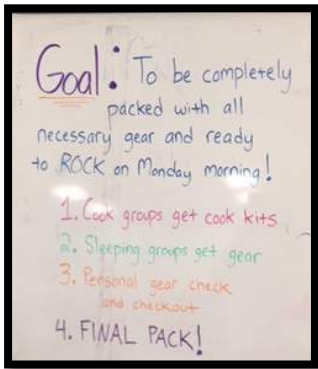 Goal: To be completely
packed with all
necessary gear and ready
to ROCK on Monday morning!
1. Cook groups get cook kits
2. Sleeping groups get gear
3. Personal gear check
and checkout
4. FINAL PACK!